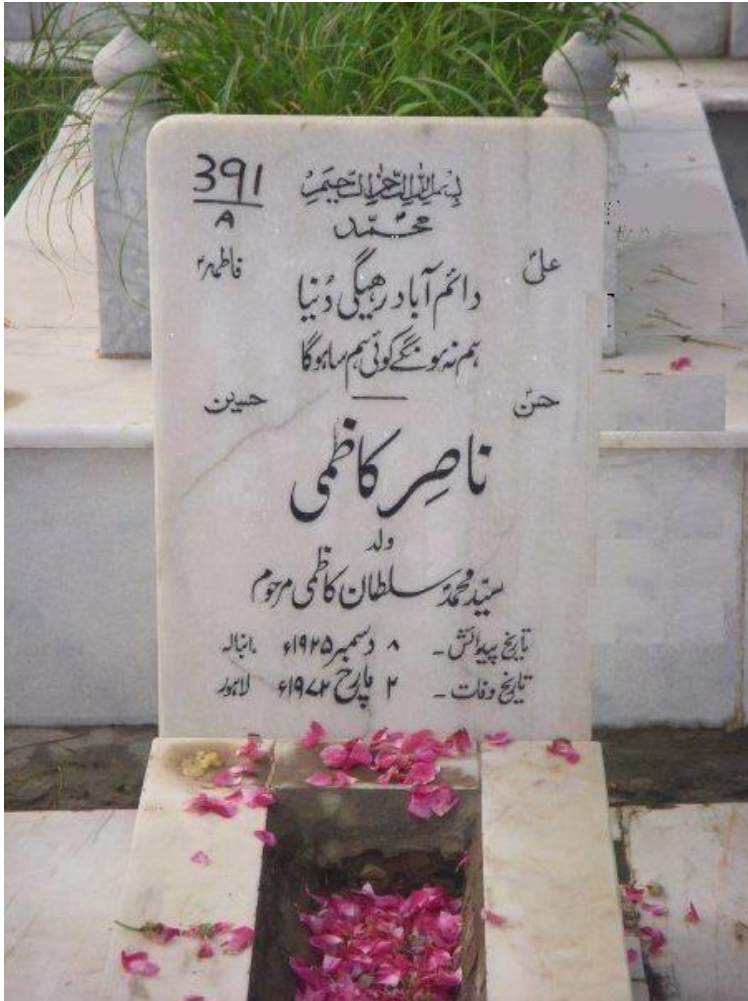 391
A
بسم الله الرحمن الرحیم
محمدؐ
علیؑ فاطمہؑ
دائم آباد رھیگی دُنیا
ہم نہ ہونگے کوئی ہم سا ہوگا
حسنؑ حسین
ناصِر کاظمی
ولد
سیّد محمدؐ سلطان کاظمی مرحوم
تاریخ پیدائش ۔ ۸ دسمبر ۱۹۲۵ء انبالہ
تاریخ وفات ۔ ۲ مارچ ۱۹۷۲ء لاہور